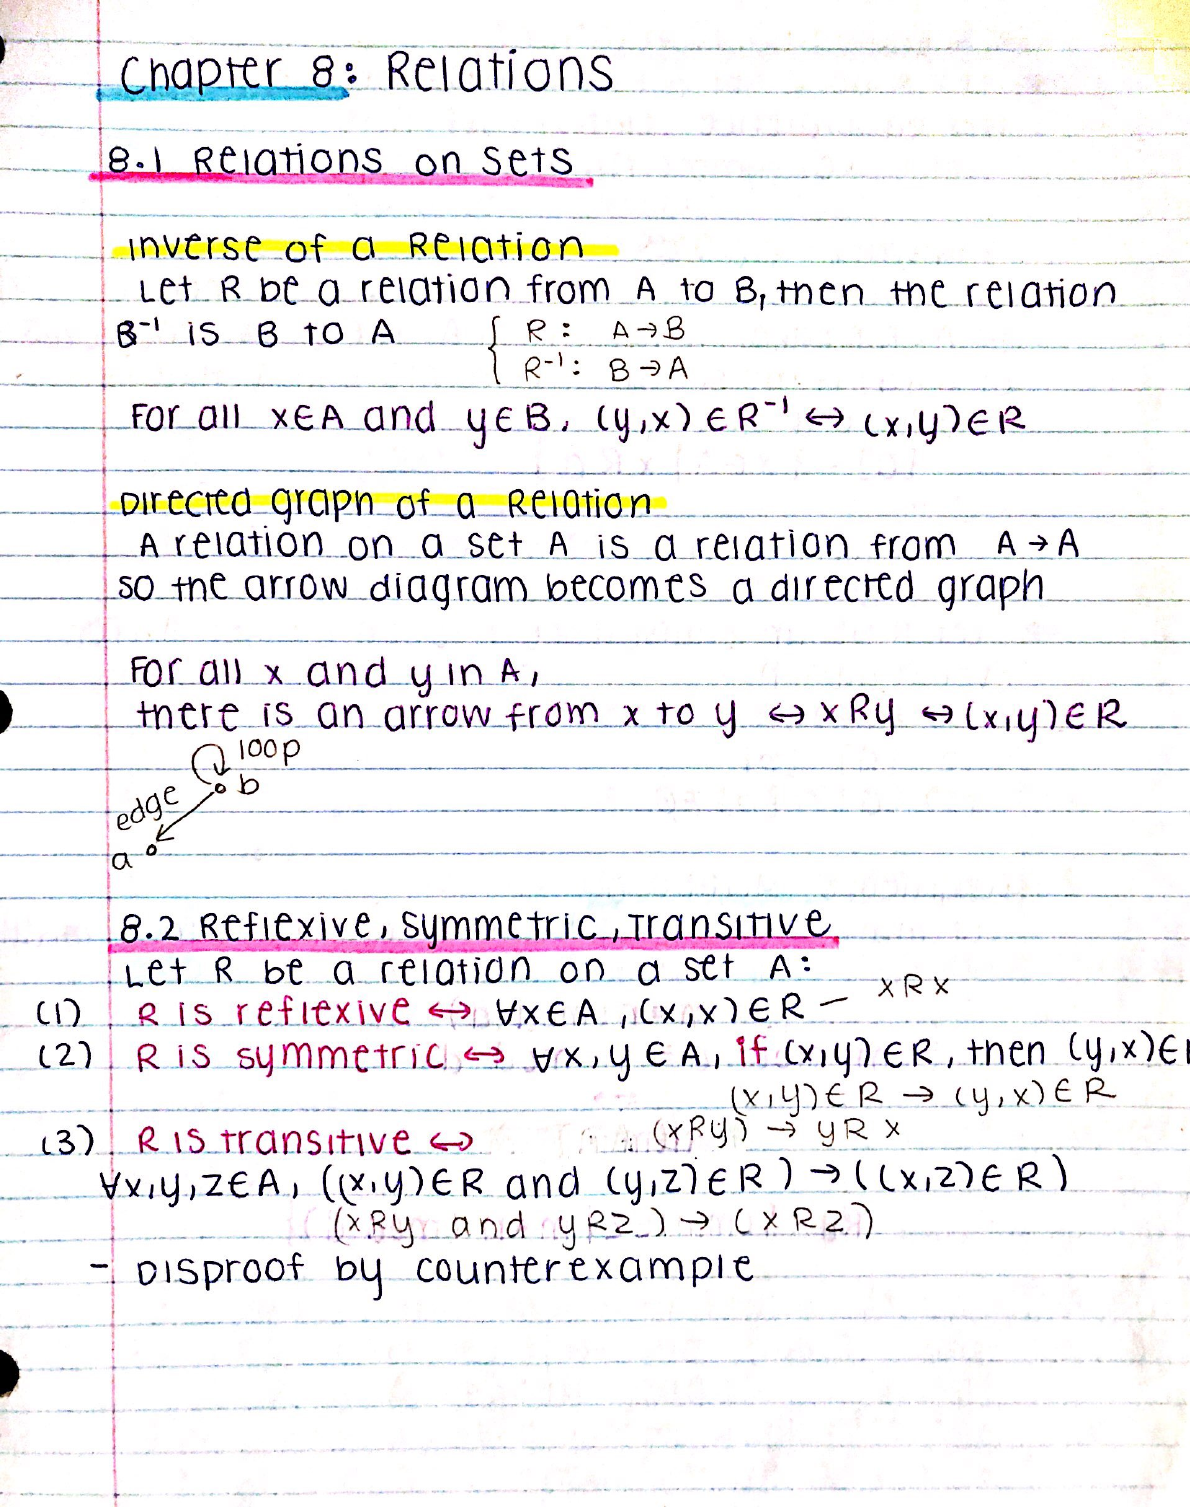 Chapter 8: Relations
8.1 Relations on Sets
Inverse of a Relation
Let R be a relation from A to B, then the relation
B⁻¹ is B to A { R: A→B
R⁻¹: B→A
For all x∈A and y∈B, (y,x)∈R⁻¹ ↔ (x,y)∈R
Directed graph of a Relation
A relation on a set A is a relation from A→A
so the arrow diagram becomes a directed graph
For all x and y in A,
there is an arrow from x to y ↔ xRy ↔ (x,y)∈R
loop
b
edge
a
8.2 Reflexive, Symmetric, Transitive
Let R be a relation on a set A:
(1) R is reflexive ↔ ∀x∈A, (x,x)∈R — xRx
(2) R is symmetric ↔ ∀x,y∈A, if (x,y)∈R, then (y,x)∈
(x,y)∈R → (y,x)∈R
(xRy) → yRx
(3) R is transitive ↔
∀x,y,z∈A, ((x,y)∈R and (y,z)∈R) → ((x,z)∈R)
(xRy and yRz) → (xRz)
- Disproof by counterexample